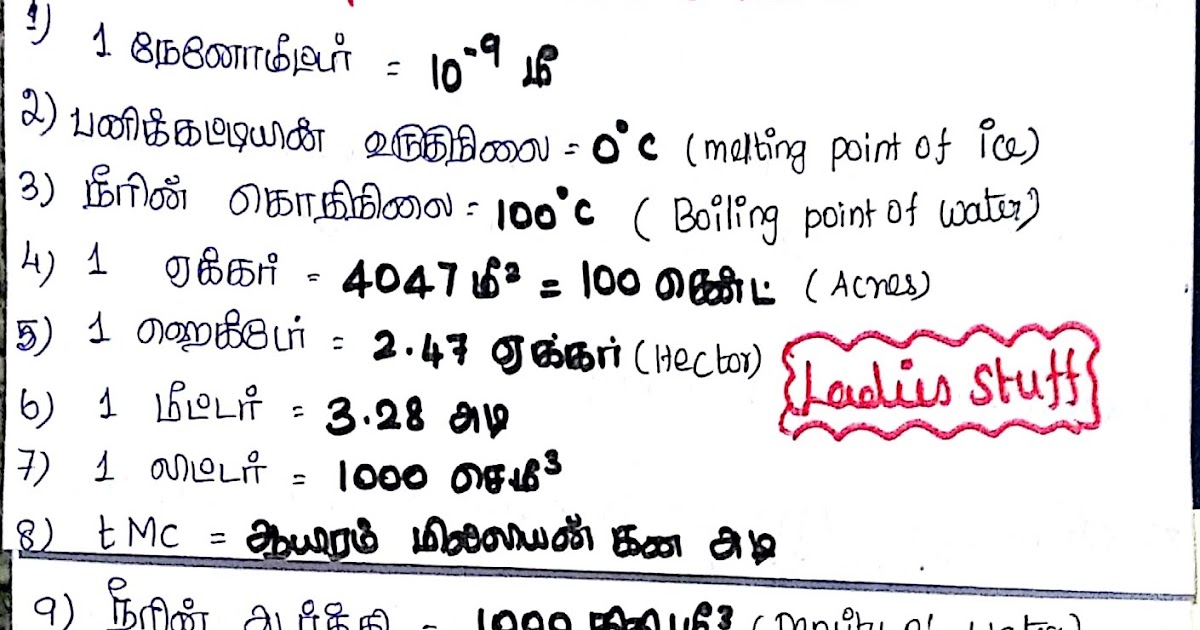 1) 1 நேனோமீட்டர் = 10⁻⁹ மீ
2) பனிக்கட்டியின் உருகுநிலை = 0°C (melting point of ice)
3) நீரின் கொதிநிலை = 100°C ( Boiling point of water)
4) 1 ஏக்கர் = 4047 மீ² = 100 செண்ட் (Acres)
5) 1 ஹெக்டேர் = 2.47 ஏக்கர் (Hector)
Ladies Stuff
6) 1 மீட்டர் = 3.28 அடி
7) 1 லிட்டர் = 1000 செமீ³
8) tMC = ஆயிரம் மில்லியன் கன அடி
9) நீரின் = 1000